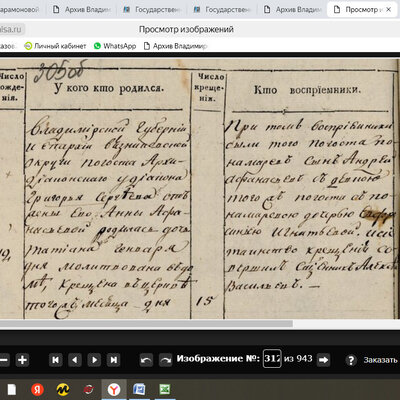 арамоновой
Архив Владим
Государственн
Государственн
Архив Владим
Просмотр и
aisa.ru
Просмотр изображений
Личный кабинет
WhatsApp
Архив Владимир
305об
Число рожде- нія.
У кого кто родился.
Число креще- нія.
Кто воспріемники.
Владимірской Губерніи
и епархіи
округи погоста Архи-
діаконскаго у діакона
Григорья Сергѣева отъ
жены его Анны
родилась дочь
Татіана Генваря
дня молитвована въдо
мѣ, крещена въ церкв
тогожъ мѣсяца дня
15
При томъ воспріемники
были того погоста по-
намаревъ сынъ Андрей
Афанасьевъ
тогожъ погоста по-
намарева дочерью
Игнатьевой.
таинство крещенія со
вершилъ Священникъ Алекс
Васильевъ.
Изображение №:
312
из 943
Заказать